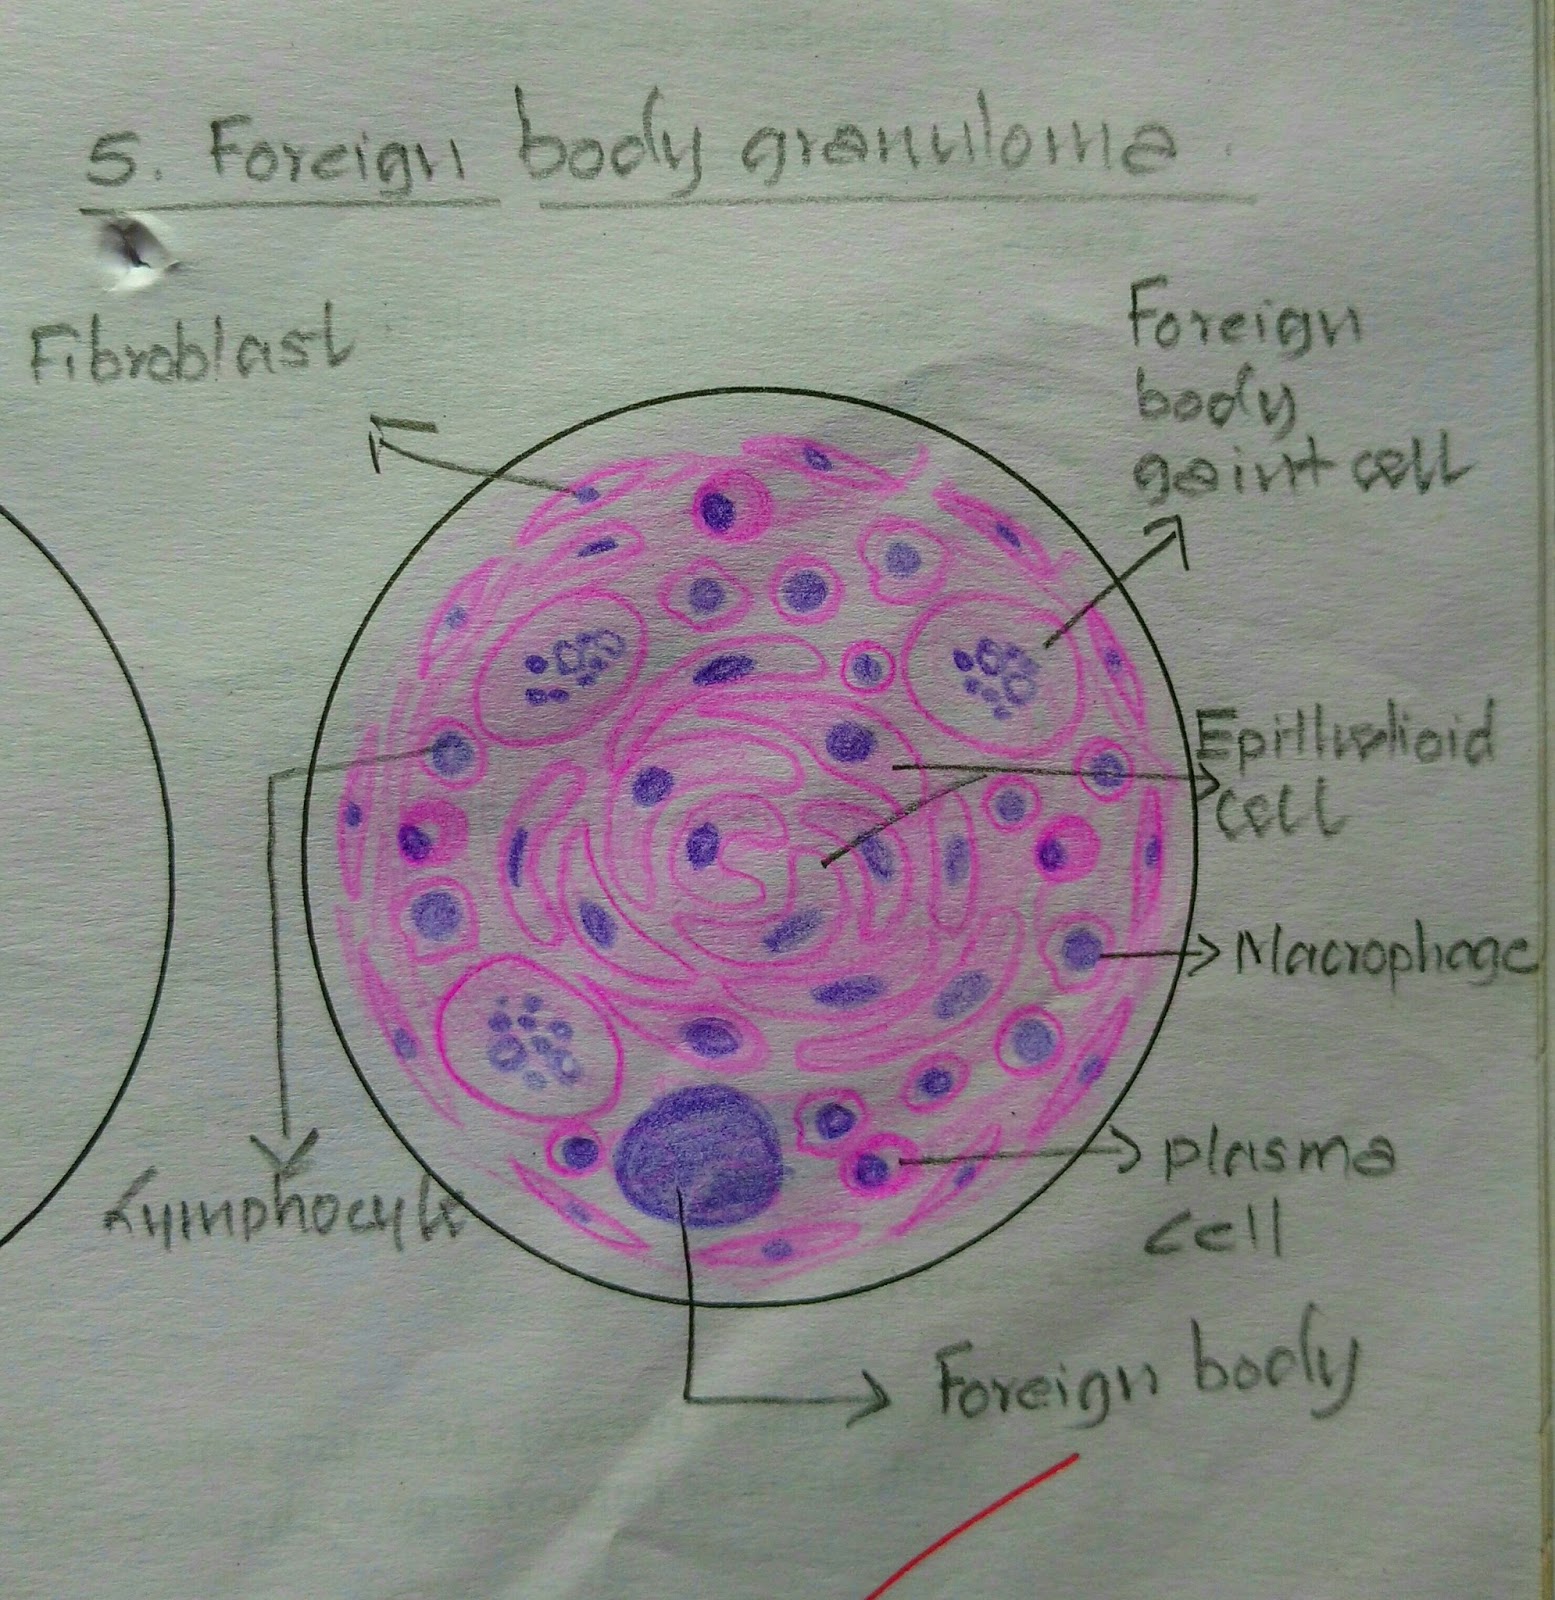 5. Foreign body granuloma.
Fibroblast
Foreign
body
gaint cell
Epithelioid
cell
Macrophage
Plasma
cell
Lymphocyte
Foreign body